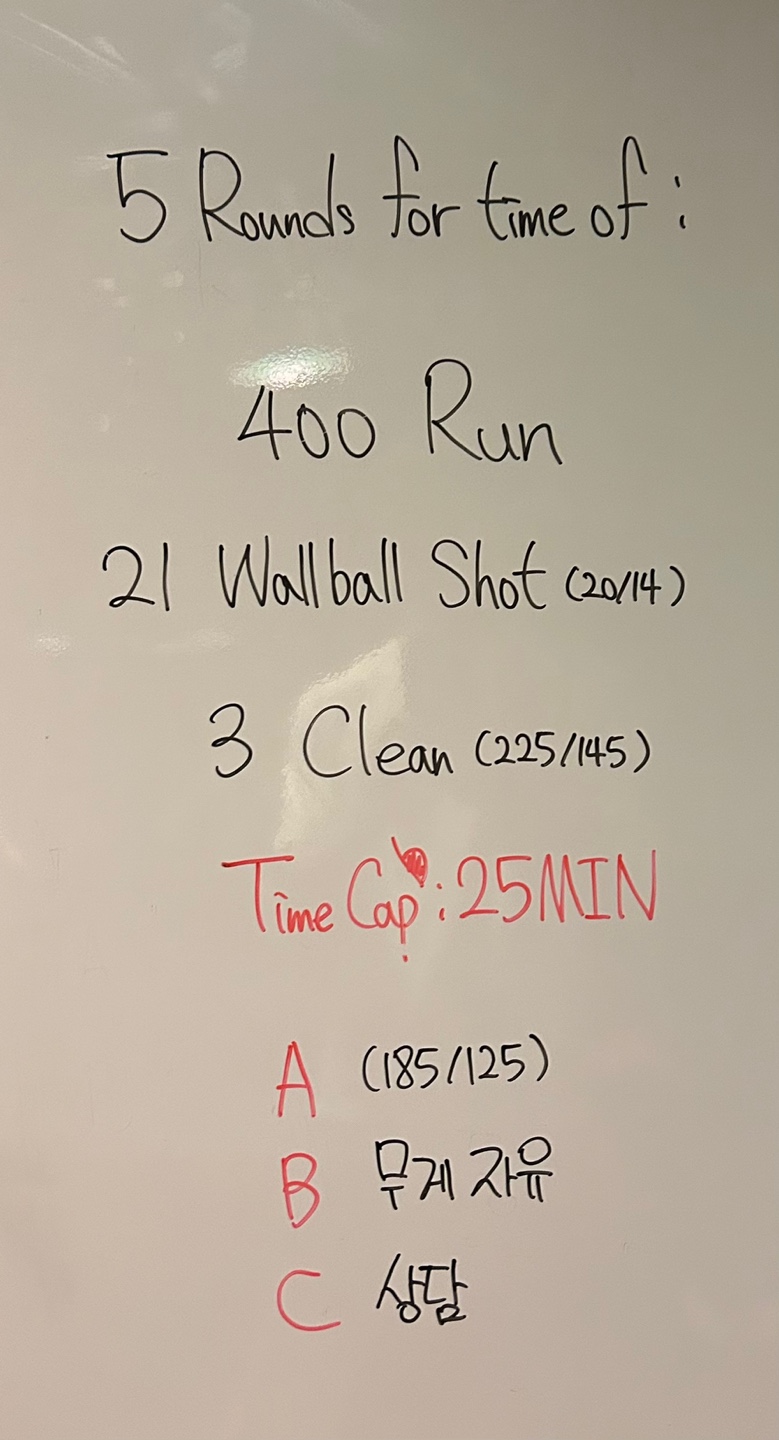 5 Rounds for time of :
400 Run
21 Wallball Shot (20/14)
3 Clean (225/145)
Time Cap : 25MIN
A (185/125)
B 무게 자유
C 상담